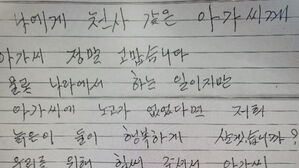 나에게 천사 같은 아가씨께
아가씨 정말 고맙습니다
물론 나라에서 하는 일이지만
아가씨에 노고가 없었다면 저희
늙은이 들이 행복하게 살겠습니까?
우리를 위해 힘써 주셔서 아가씨